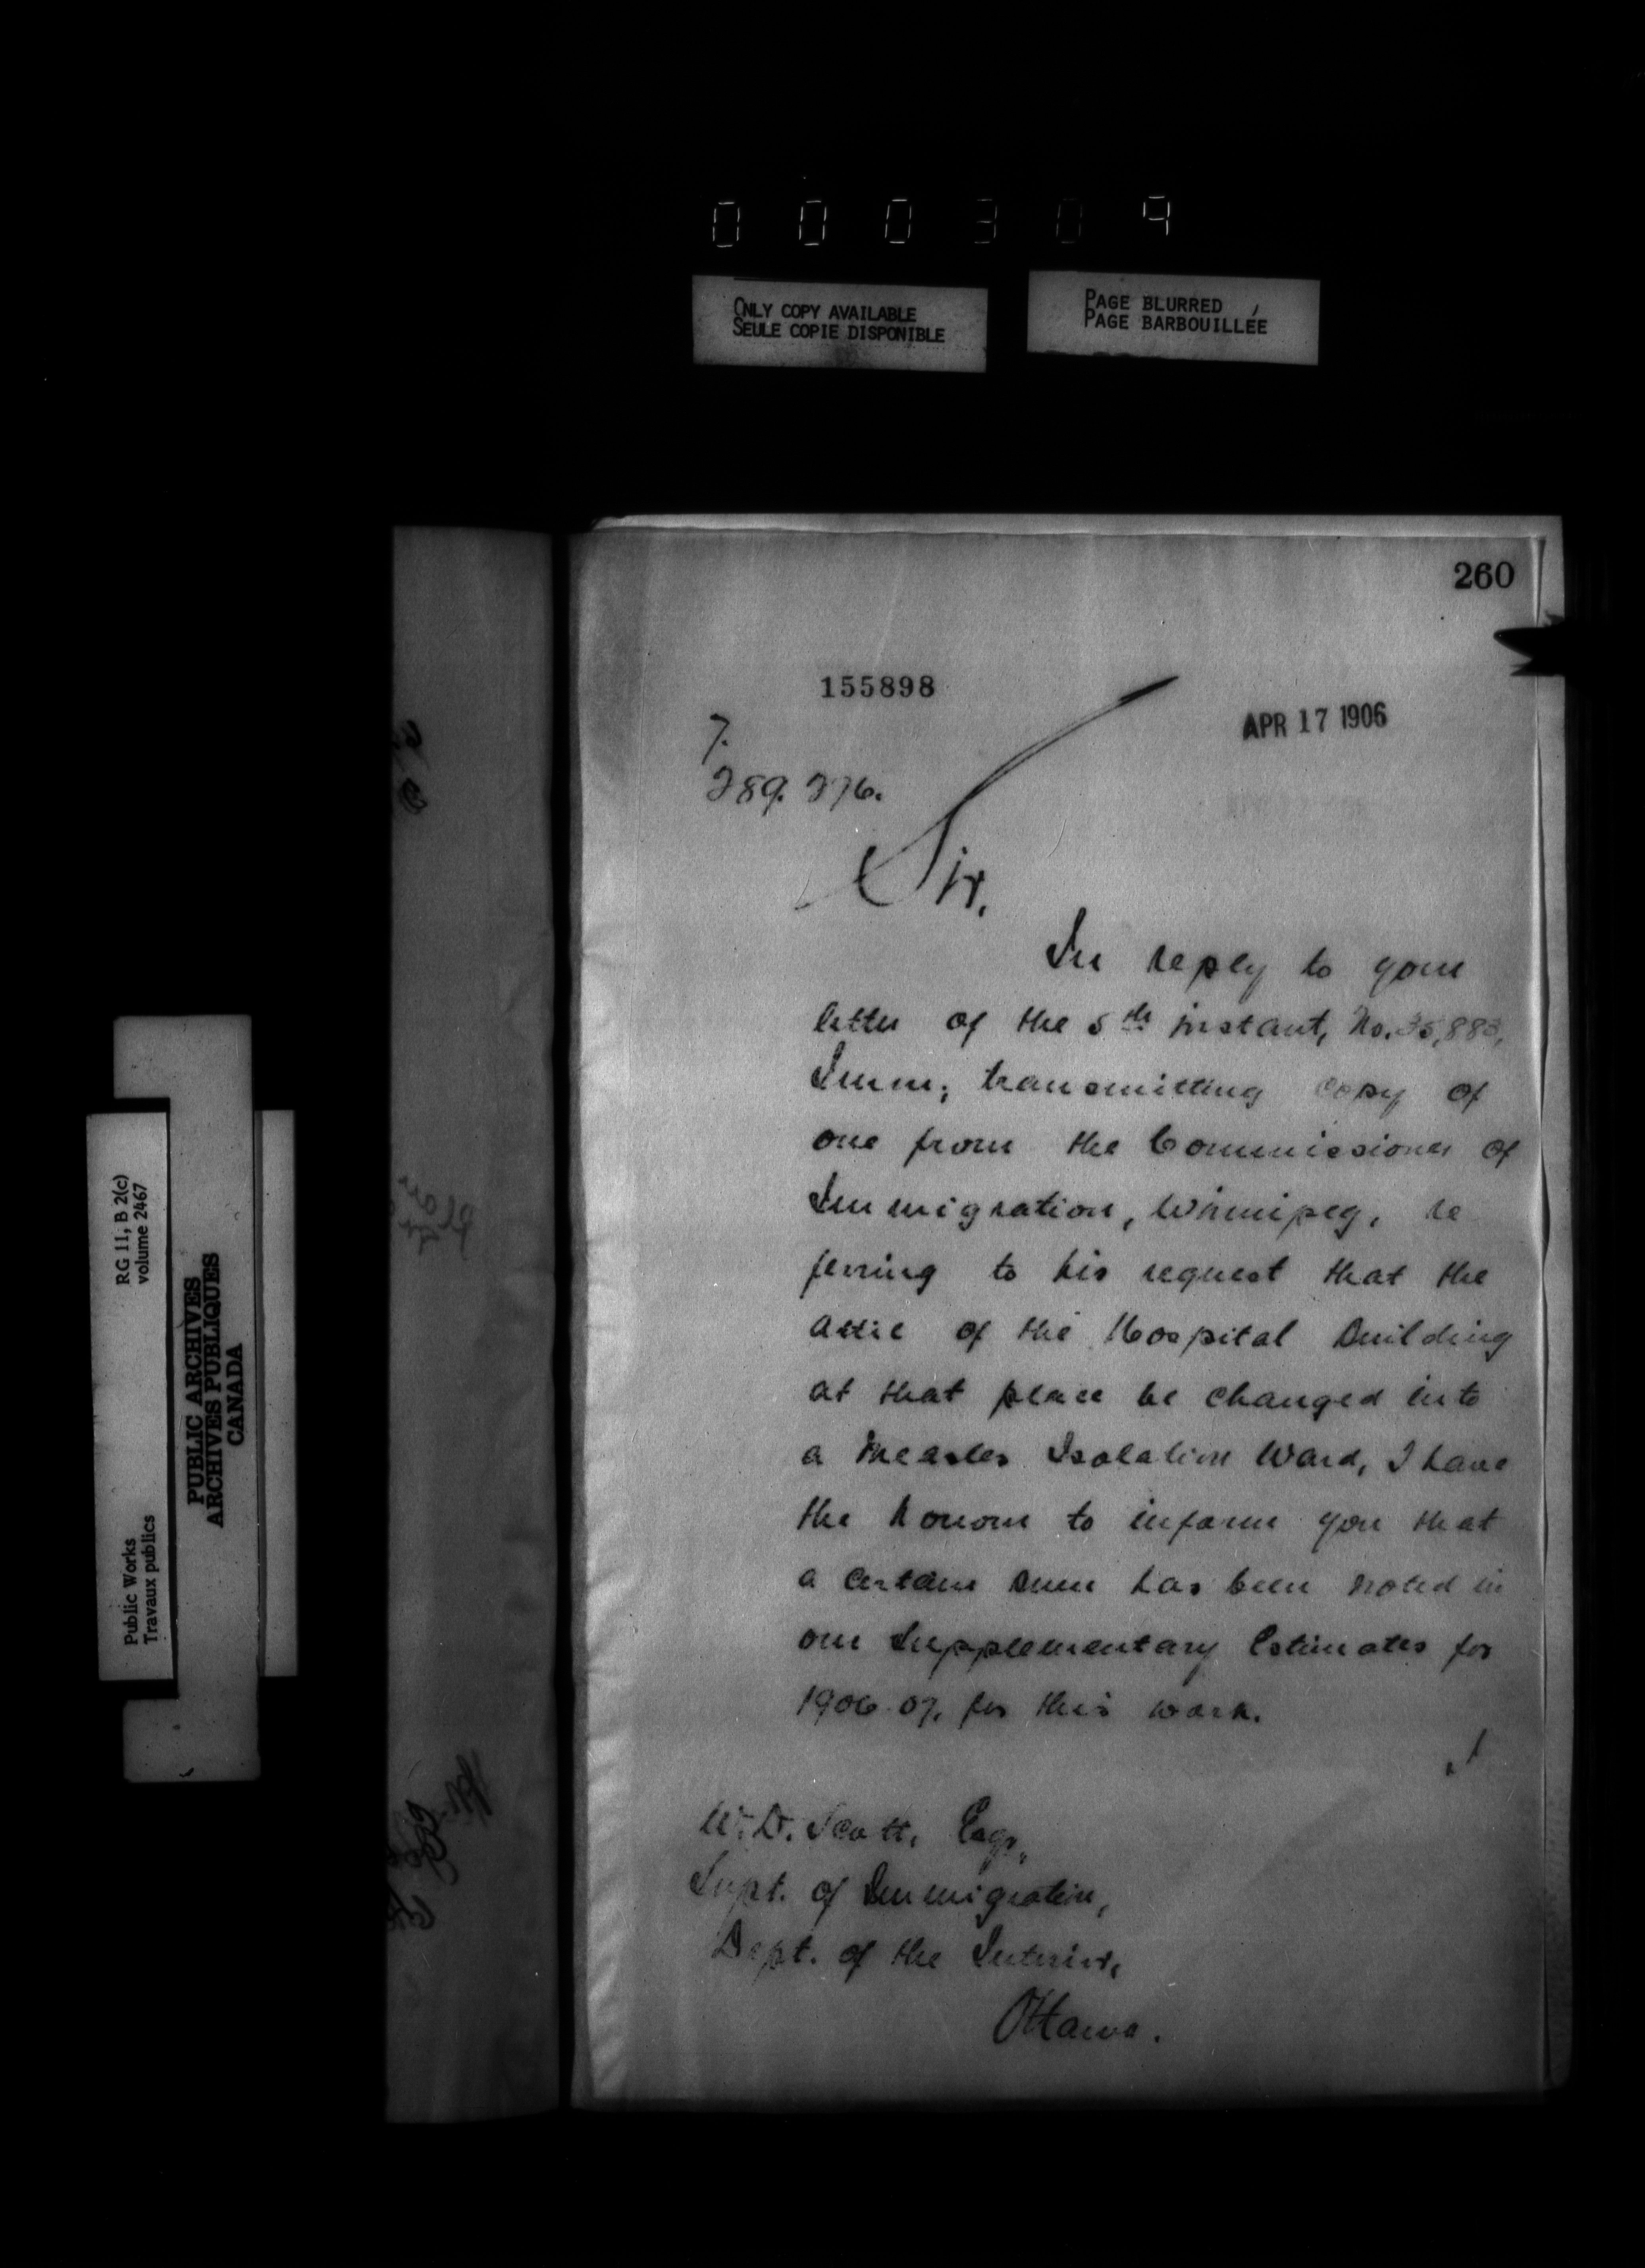 000309
ONLY COPY AVAILABLE
SEULE COPIE DISPONIBLE
PAGE BLURRED
PAGE BARBOUILLÉE
260
155898
APR 17 1906
7.
289.276.
Sir,
In reply to your
letter of the 5th instant, No. 35,883,
Imm; transmitting copy of
one from the Commissioner of
Immigration, Winnipeg, re
ferring to his request that the
attic of the Hospital Building
at that place be changed into
a Measles Isolation Ward, I have
the honour to inform you that
a certain sum has been noted in
our Supplementary Estimates for
1906.07, for this work.
W. D. Scott, Esqr,
Supt. of Immigration,
Dept. of the Interior,
Ottawa.
RG 11, B 2(c)
volume 2467
Public Works
Travaux publics
PUBLIC ARCHIVES
ARCHIVES PUBLIQUES
CANADA